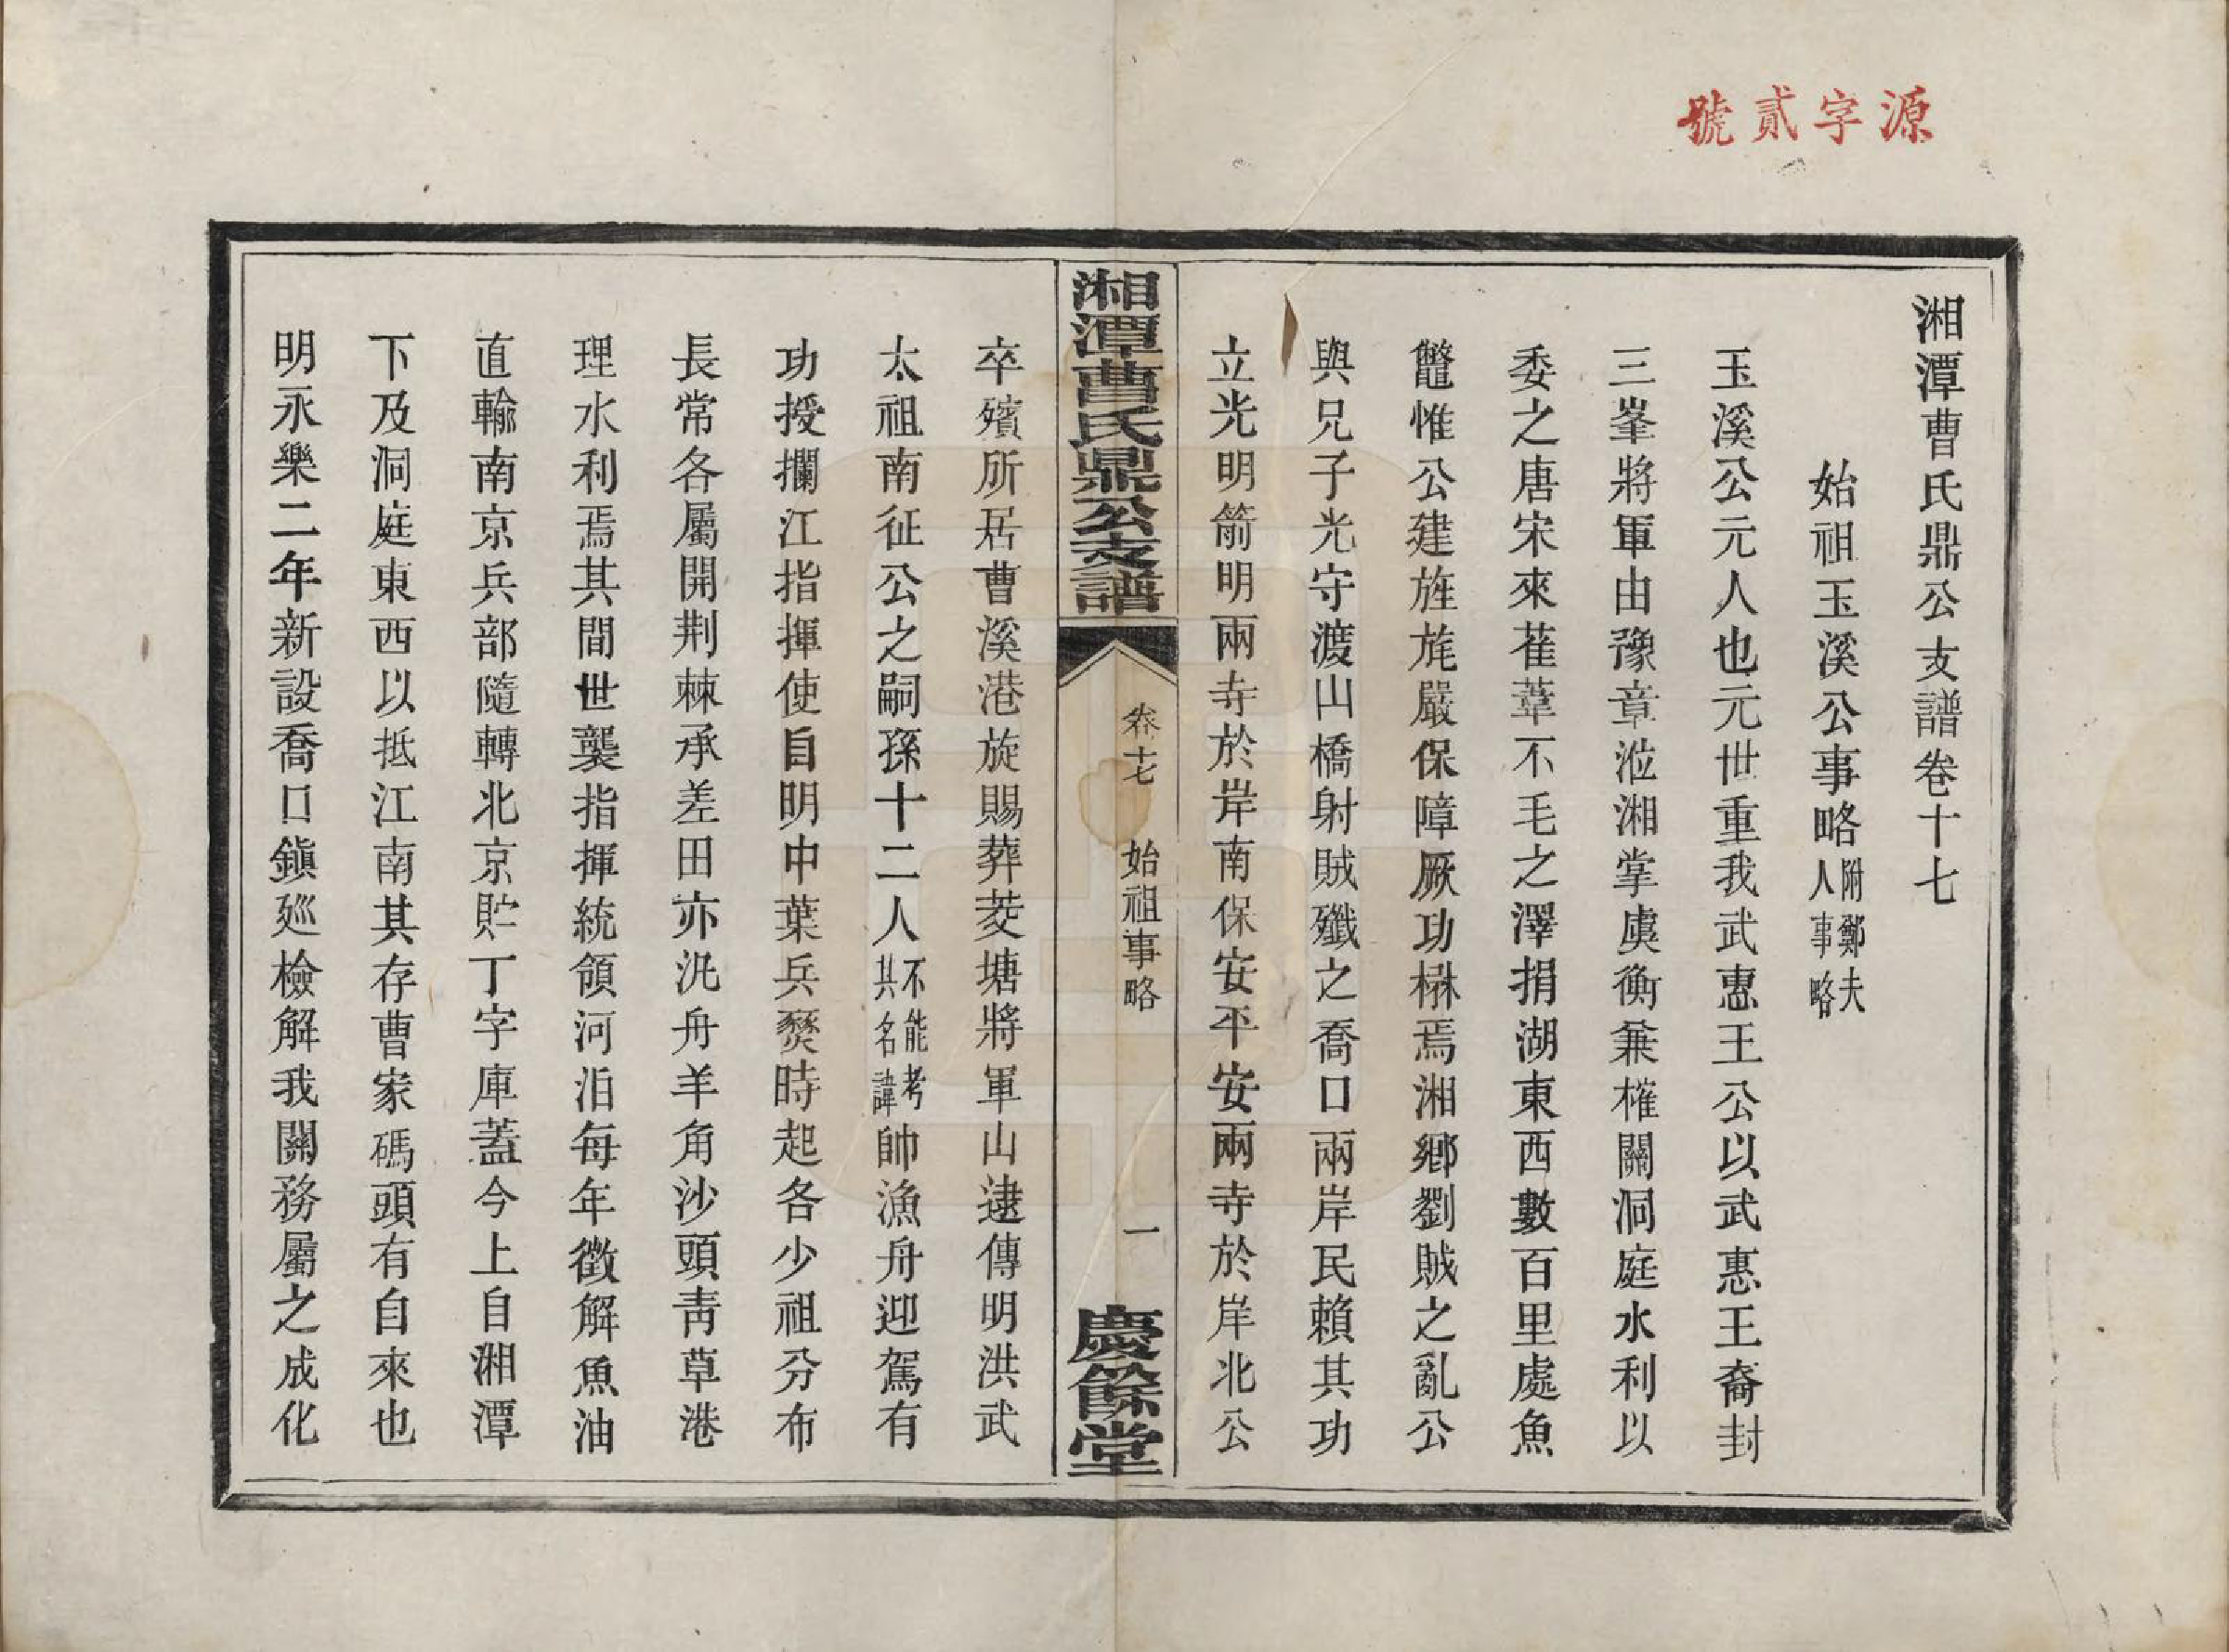 源字貳號
湘潭曹氏鼎公支譜卷十七
始祖玉溪公事略附鄭夫人事略
玉溪公元人也元世重我武惠王公以武惠王裔封
三峯將軍由豫章涖湘掌虞衡兼榷關洞庭水利以
委之唐宋來萑葦不毛之澤捐湖東西數百里處魚
鼈惟公建旌旄嚴保障厥功楙焉湘鄉劉賊之亂公
與兄子光守渡山橋射賊殲之喬口兩岸民賴其功
立光明箭明兩寺於岸南保安平安兩寺於岸北公
湘潭曹氏鼎公支譜
卷十七
始祖事略
一
慶餘堂
卒殯所居曹溪港旋賜葬菱塘將軍山逮傳明洪武
太祖南征公之嗣孫十二人不能考其名諱帥漁舟迎駕有
功授攔江指揮使自明中葉兵燹時起各少祖分布
長常各屬開荆棘承差田亦汎舟羊角沙頭靑草港
理水利焉其間世襲指揮統領河泊每年徵解魚油
直輸南京兵部隨轉北京貯丁字庫蓋今上自湘潭
下及洞庭東西以抵江南其存曹家碼頭有自來也
明永樂二年新設喬口鎭廵檢解我關務屬之成化